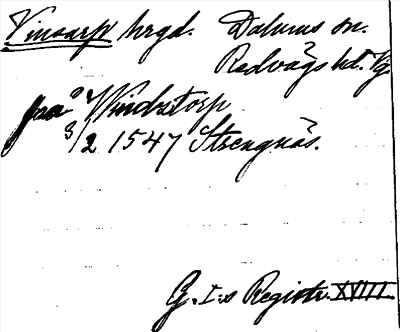 Vinsarp hrgd. Dalums sn.
Redvägs hd. Vg
paa Windztorp
3/2 1547 Strengnäs.
G. I:s Registr. XVIII.